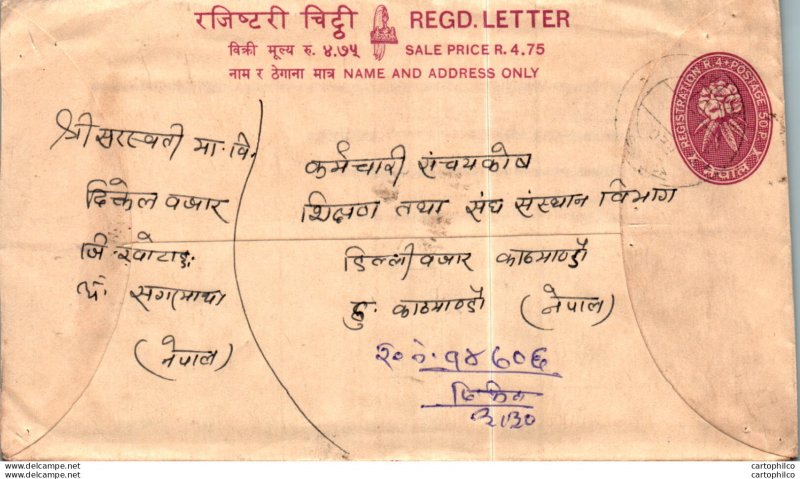 रजिष्टरी चिट्ठी REGD. LETTER
बिक्री मूल्य रु. ४.७५ SALE PRICE R. 4.75
नाम र ठेगाना मात्र NAME AND ADDRESS ONLY
REGISTRATION R. 4 + POSTAGE 50 P.
नेपाल
श्री सरस्वती मा. वि.
दिकेल बजार
जि. खोटाङ
सगरमाथा
(नेपाल)
कर्मचारी संचयकोष
शिक्षण तथा संघ संस्थान विभाग
डिल्ली बजार काठमाण्डौ
काठमाण्डौ (नेपाल)
१४६०६
delcampe.net
cartophilco
cartophilco